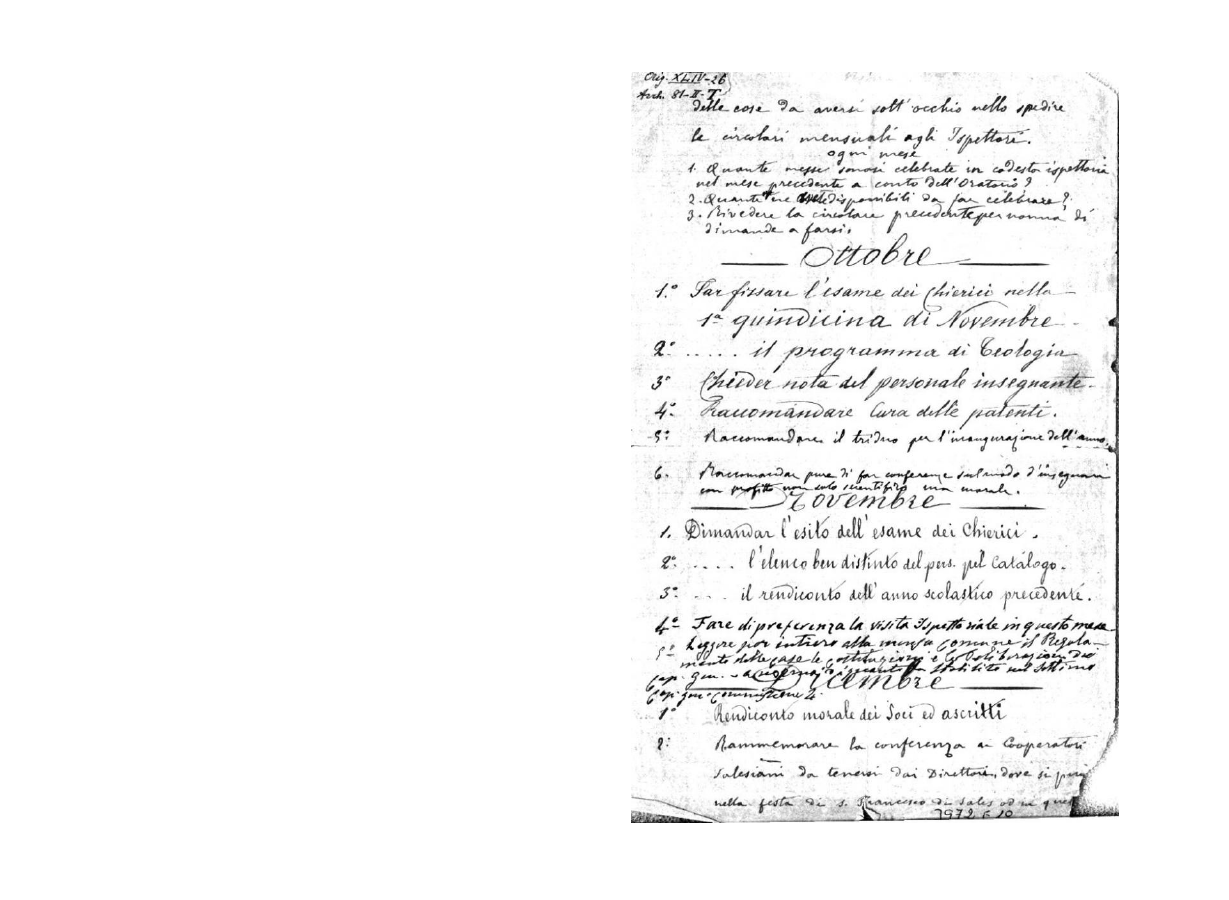 Orig. XLIV-26
Arch. 81-II-T
delle cose da aversi sott'occhio nello spedire
le circolari mensuali agli Ispettori.
ogni mese
1. Quante messe sonosi celebrate in codesta ispettoria
nel mese precedente a conto dell'Oratorio?
2. Quante ne disponibili da far celebrare?
3. Rivedere la circolare precedente per norma di
dimande a farsi.
Ottobre
1.° Far fissare l'esame dei Chierici nella
1ª quindicina di Novembre
2° ..... il programma di Teologia
3° Chieder nota del personale insegnante.
4° Raccomandare cura delle patenti.
5° Raccomandare il triduo per l'inaugurazione dell'anno
6. Raccomandar pure di far conferenze sul modo d'insegnare
con profitto non solo scientifico ma morale.
Novembre
1. Dimandar l'esito dell'esame dei Chierici.
2° .... l'elenco ben distinto del pers. pel Catalogo.
3° ... il rendiconto dell'anno scolastico precedente.
4° Fare di preferenza la visita Ispettoriale in questo mese
5° Leggere per intiero alla mensa comune il Regola-
mento delle case le costituzioni e le Deliberazioni dei
Cap. gen. stabilito nel settimo
Cap. gen. Commissione 4.
Dicembre
1° Rendiconto morale dei Soci ed ascritti
2° Rammemorare la conferenza ai Cooperatori
Salesiani da tenersi dai Direttori, dove si
nella festa di S. Francesco di Sales od in